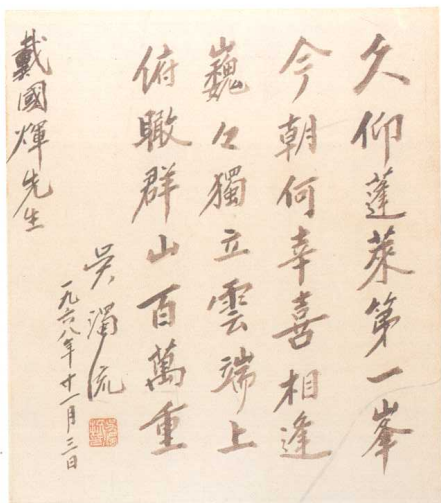 久仰蓬萊第一峯
今朝何幸喜相逢
巍々獨立雲端上
俯瞰群山百萬重
吳濁流
一九六八年十一月三日
戴國煇先生